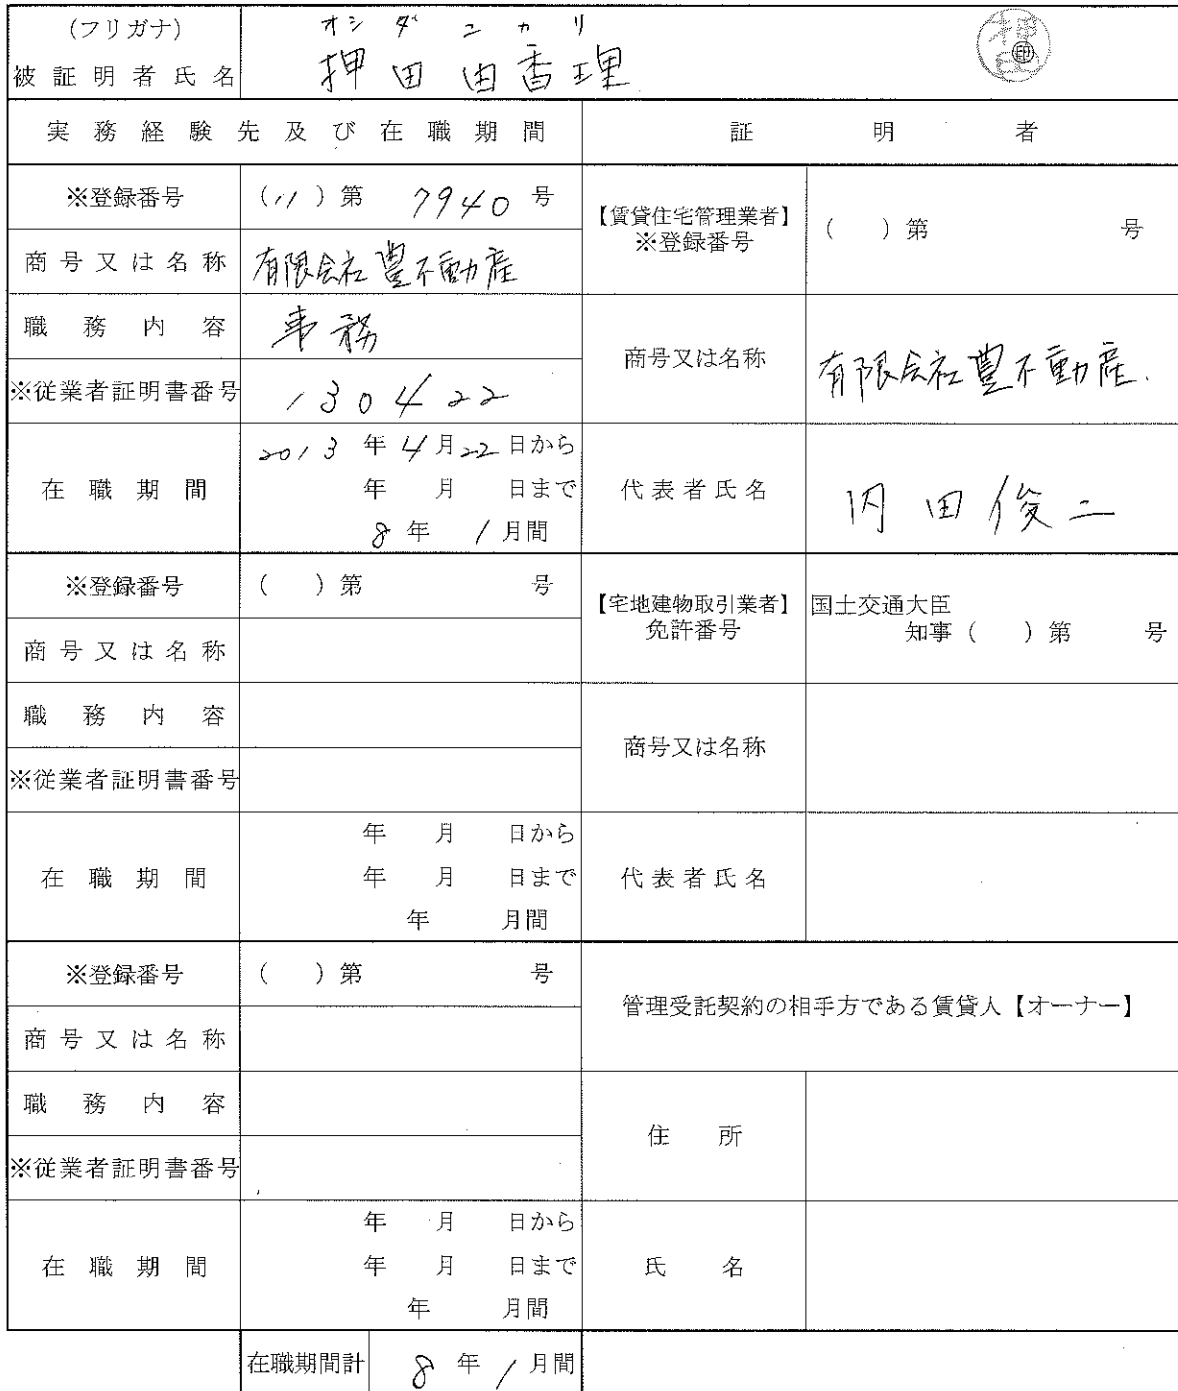 (フリガナ) オシダ ユカリ
被証明者氏名 押田 由香理 ㊞
実務経験先及び在職期間 証明者
※登録番号 (11)第 7940 号
【賃貸住宅管理業者】
※登録番号 ( )第 号
商号又は名称 有限会社豊不動産
職務内容 事務
商号又は名称 有限会社豊不動産.
※従業者証明書番号 130422
在職期間 2013年4月22日から
年 月 日まで
8年 1月間
代表者氏名 内田俊二
※登録番号 ( )第 号
【宅地建物取引業者】
免許番号
国土交通大臣
知事( )第 号
商号又は名称
職務内容
商号又は名称
※従業者証明書番号
在職期間 年 月 日から
年 月 日まで
年 月間
代表者氏名
※登録番号 ( )第 号
管理受託契約の相手方である賃貸人【オーナー】
商号又は名称
職務内容
住所
※従業者証明書番号
在職期間 年 月 日から
年 月 日まで
年 月間
氏名
在職期間計 8年1月間